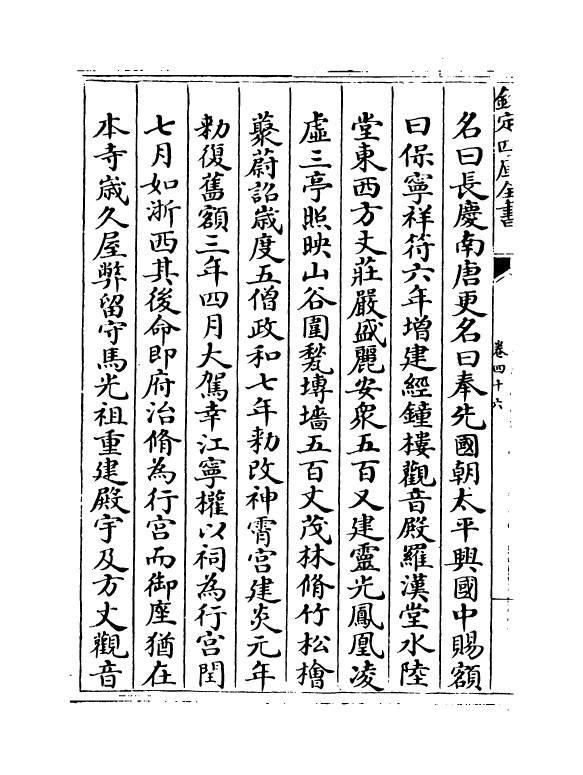 欽定四庫全書
卷四十六
名曰長慶南唐更名曰奉先國朝太平興國中賜額
曰保寧祥符六年增建經鐘樓觀音殿羅漢堂水陸
堂東西方丈莊嚴盛麗安衆五百又建靈光鳳凰凌
虛三亭照映山谷圍甃塼墻五百丈茂林脩竹松檜
蓊蔚詔歲度五僧政和七年勑改神霄宫建炎元年
勑復舊額三年四月大駕幸江寧權以祠為行宫閏
七月如浙西其後命即府治脩為行宫而御座猶在
本寺歲久屋弊留守馬光祖重建殿宇及方丈觀音